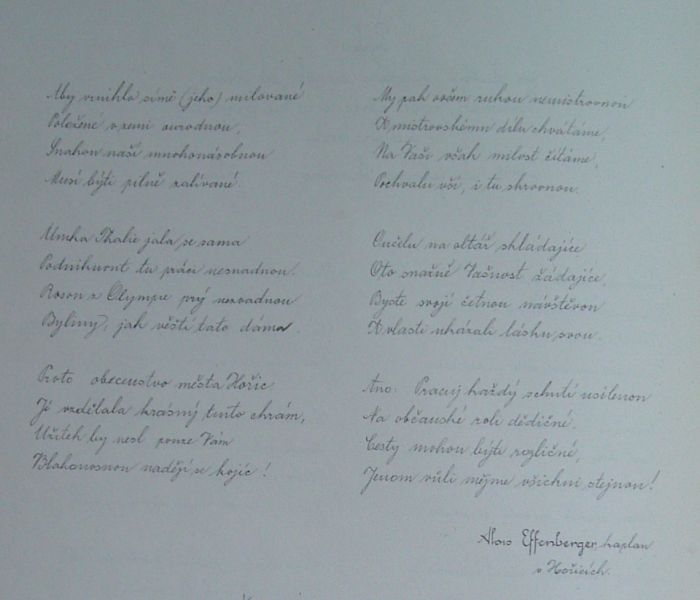 Aby vzniklo símě (jeho) milované
Položené v zemi ourodnou,
Snahou naší mnohonásobnou
Musí býti pilně zalívané.
Umka Thalie jala se sama
Podniknout tu práci nesnadnou.
Rosou z Olympu prý nezvadnou
Byliny, jak věští tato dáma.
Proto obecenstvo města Hořic
Jí vzdělala krásný tento chrám,
Užitek by nesl pouze Vám
Blahonosnou nadějí se kojíc!
My pak ovšem rukou nemistrovnou
K mistrovskému dílu chvátáme,
Na Vaši však milost čítáme,
Pochvalu vší, i tu skrovnou.
Oučelu na oltář skládajíce
Oto snažně Vašnost žádajíce,
Byste svojí četnou návštěvou
K vlasti ukázali lásku svou.
Ano: Pracuj každý s chutí usilnou
Na občanské roli dědičné.
Cesty mohou býti rozličné,
Jenom vůli mějme všichni stejnou!
Alois Effenberger, kaplan
v Hořicích.